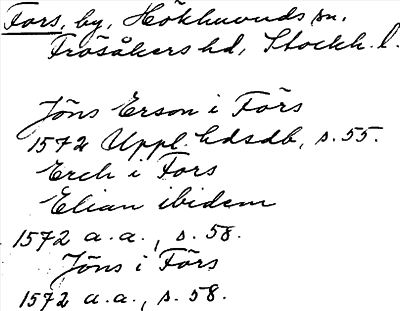 Fors, by, Hökhuvuds sn.
Frösåkers hd, Stockh. l.
Jöns Erson i Förs
1572 Uppl. hdsdb, s. 55.
Erch i Fors
Elian ibidem
1572 a.a., s. 58.
Jöns i Förs
1572 a.a., s. 58.